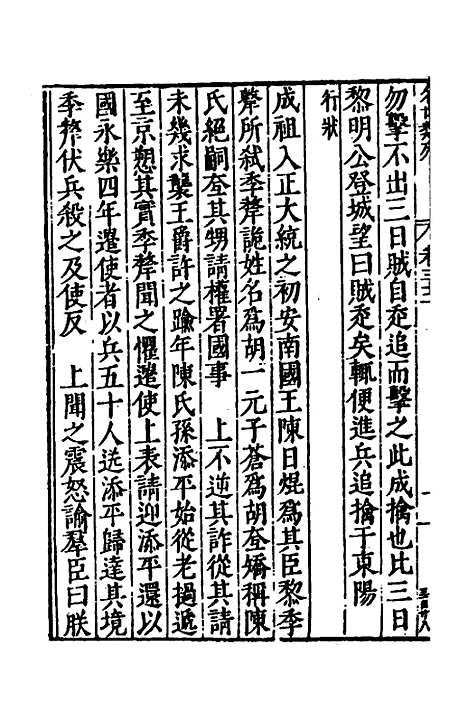 勿擊不出三日賊自𨒪追而擊之此成擒也比三日
黎明公登城望曰賊𨒪矣輒便進兵追擒于東陽
行狀
成祖入正大統之初安南國王陳日焜爲其臣黎季
犛所弑季犛詭姓名爲胡一元子蒼爲胡𡗨嬌稱陳
氏絕嗣𡗨其甥請權署國事　上不逆其詐從其請
未幾求襲王爵許之踰年陳氏孫添平始從老撾遁
至京愬其實季犛聞之懼遣使上表請迎添平還以
國永樂四年遣使者以兵五十人送添平歸達其境
季犛伏兵殺之及使反　上聞之震怒諭羣臣曰朕